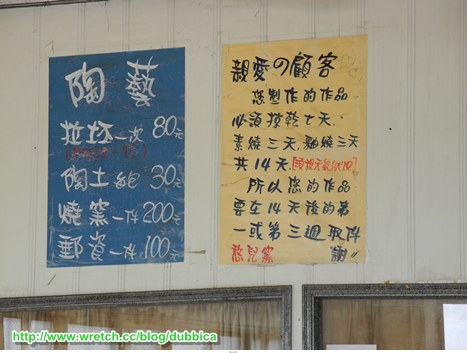 陶藝
拉坯一次 80元
陶土一包 30元
燒窯一件 200元
郵資一件 100元
親愛の顧客
您製作的作品
必須陰乾七天.
素燒三天.釉燒三天
共14天.
所以您的作品
要在14天後的第
一或第三週取件
憨兒窯 謝謝
http://www.wretch.cc/blog/dubbica